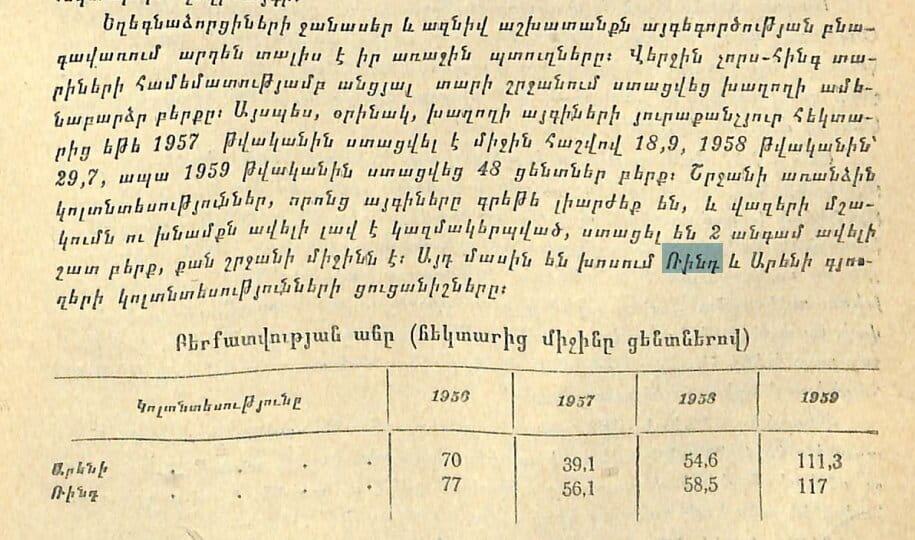 Եղեգնաձորցիների ջանասեր և ազնիվ աշխատանքն այգեգործության բնա-
գավառում արդեն տալիս է իր առաջին պտուղները։ Վերջին չորս-հինգ տա-
րիների համեմատությամբ անցյալ տարի շրջանում ստացվեց խաղողի ամե-
նաբարձր բերքը։ Այսպես, օրինակ, խաղողի այգիների յուրաքանչյուր հեկտա-
րից եթե 1957 թվականին ստացվել է միջին հաշվով 18,9, 1958 թվականին՝
29,7, ապա 1959 թվականին ստացվեց 48 ցենտներ բերք։ Շրջանի առանձին
կոլտնտեսություններ, որոնց այգիները գրեթե լիարժեք են, և վազերի մշա-
կումն ու խնամքն ավելի լավ է կազմակերպված, ստացել են 2 անգամ ավելի
շատ բերք, քան շրջանի միջինն է։ Այդ մասին են խոսում Ռինդ և Արենի գյու-
ղերի կոլտնտեսությունների ցուցանիշները։
Բերքատվության աճը (հեկտարից միջինը ցենտներով)
Կոլտնտեսությունը 1956 1957 1958 1959
Արենի . . . . 70 39,1 54,6 111,3
Ռինդ . . . . 77 56,1 58,5 117